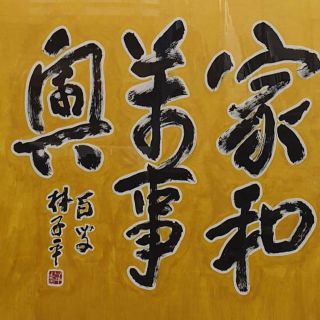 家和
萬事
興
百
林子平